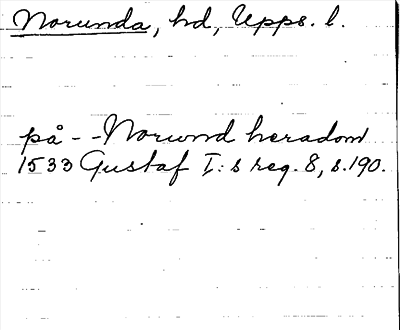 Norunda, hd, Upps. l.
på - - Norwnd heradom
1533 Gustaf I:s reg. 8, s. 190.